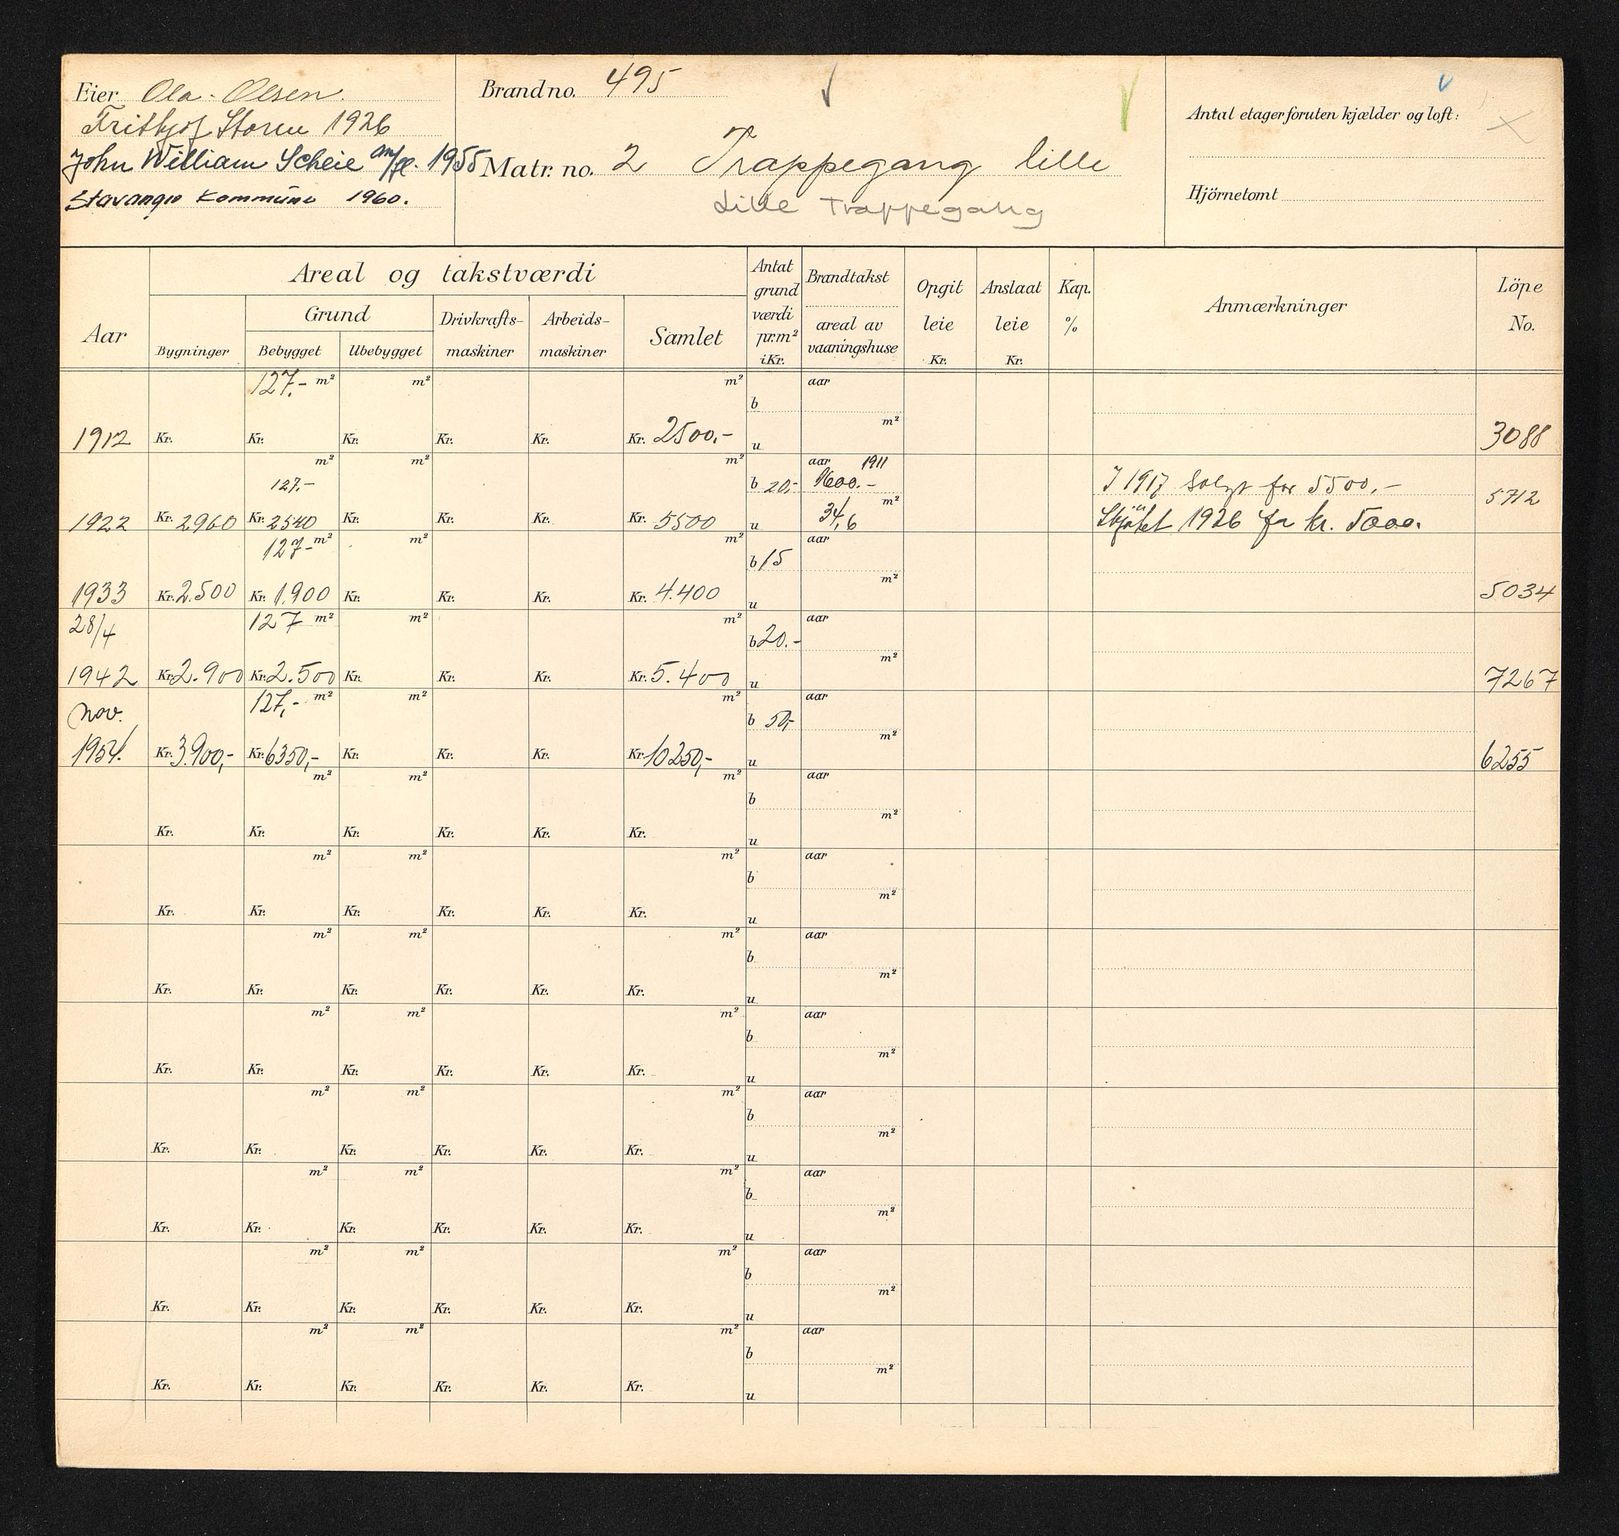 Eier Ola Olsen.
Fritbjof Storm 1926
John William Scheie m/fl. 1955
Stavanger Kommune 1960.
Brand no. 495
Matr. no. 2 Trappegang lille
Lille Trappegang
Antal etager foruten kjælder og loft:
Hjörnetomt
Aar
Areal og takstværdi
Grund
Bygninger
Bebygget
Ubebygget
Drivkrafts-
maskiner
Arbeids-
maskiner
Samlet
Antat
grund
værdi
pr.m²
i Kr.
Brandtakst
areal av
vaaningshuse
Opgit
leie
Kr.
Anslaat
leie
Kr.
Kap.
%
Anmærkninger
Löpe
No.
127.- m² m² m² aar
b
m²
1912 Kr. Kr. Kr. Kr. Kr. Kr. 2500.- u 3088
m² m² m² aar 1911
127.- b 20.- 1600.- I 1917 Solgt for 5500.- 5712
m²
1922 Kr. 2960 Kr. 2540 Kr. Kr. Kr. Kr. 5500 u 34,6 Skjötet 1926 for kr. 5000.
127- m² m² m² aar
b 15
m²
1933 Kr. 2.500 Kr. 1.900 Kr. Kr. Kr. Kr. 4.400 u 5034
28/4 127 m² m² m² aar
b 20.-
m²
1942 Kr. 2.900 Kr. 2.500 Kr. Kr. Kr. Kr. 5.400 u 7267
nov. 127,- m² m² m² aar
b 50,-
m²
1954. Kr. 3.900,- Kr. 6350,- Kr. Kr. Kr. Kr. 10250,- u 6255
m² m² m² aar
b
m²
Kr. Kr. Kr. Kr. Kr. Kr. u
m² m² m² aar
b
m²
Kr. Kr. Kr. Kr. Kr. Kr. u
m² m² m² aar
b
m²
Kr. Kr. Kr. Kr. Kr. Kr. u
m² m² m² aar
b
m²
Kr. Kr. Kr. Kr. Kr. Kr. u
m² m² m² aar
b
m²
Kr. Kr. Kr. Kr. Kr. Kr. u
m² m² m² aar
b
m²
Kr. Kr. Kr. Kr. Kr. Kr. u
m² m² m² aar
b
m²
Kr. Kr. Kr. Kr. Kr. Kr. u
m² m² m² aar
b
m²
Kr. Kr. Kr. Kr. Kr. Kr. u